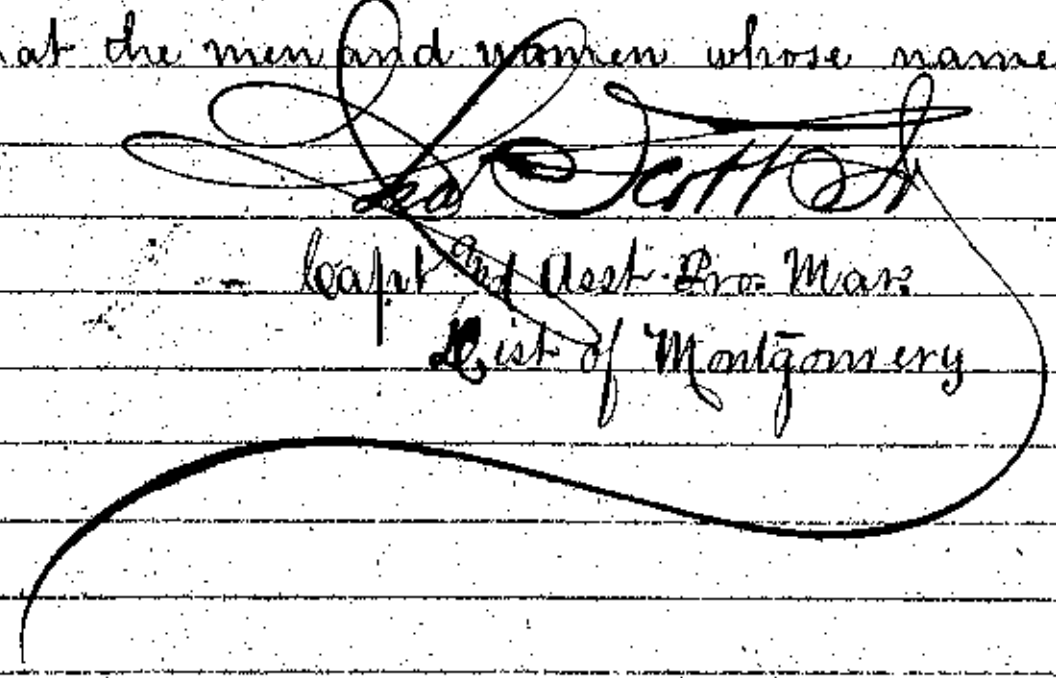 at the men and women whose name
Scott
Capt and Asst. Pro. Mar.
Dist of Montgomery